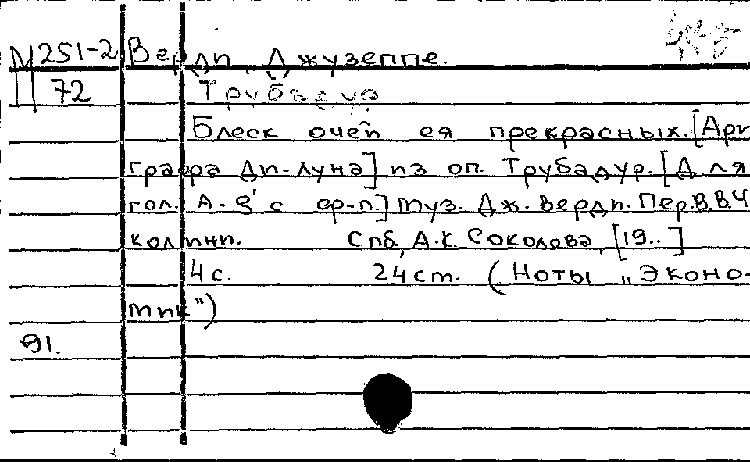 М 251-2 Верди, Джузеппе.
72 Трубадур
Блеск очей ея прекрасных. [Ари
графа Ди-Луна] из оп. Трубадур. [Для
гол. A-g' с фр-п.] Муз. Дж. Верди. Пер. В.В.Ч
колини. Спб, А.К. Соколова, [19..]
4 с. 24 ст. (Ноты „Эконо-
мик")
91.